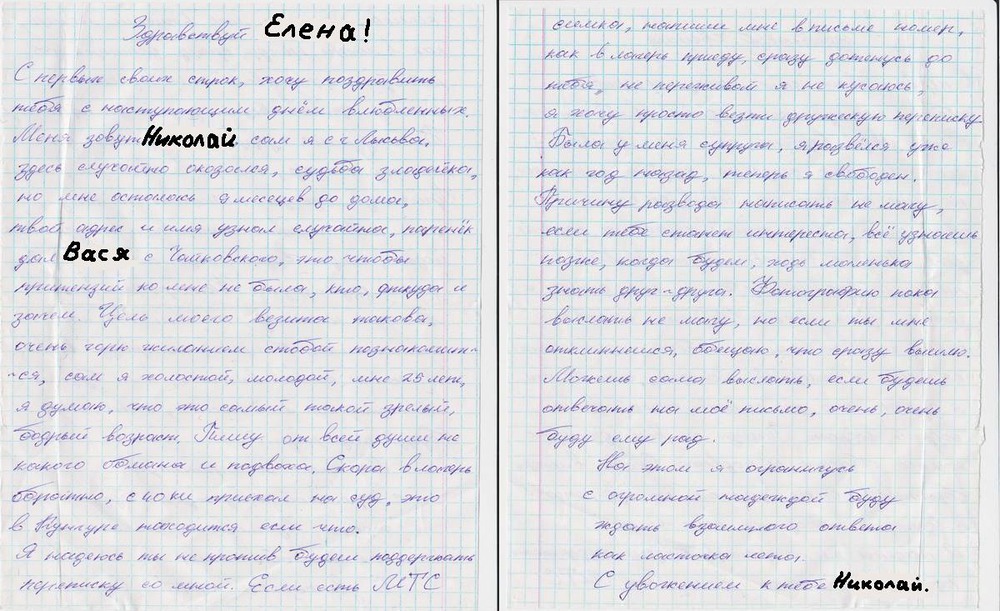 Здравствуй Елена!
С первых своих строк, хочу поздравить
тебя с наступающим днём влюбленных.
Меня зовут Николай сам я с г Лысьва.
здесь случайно оказался, судьба злодейка,
но мне осталось 9 месецев до дома,
твой адрес и имя узнал случайно, паренёк
дал Вася с Чайковского, это чтобы
притенций ко мне не была, кто, откуда и
зачем. Цель моего везита такова,
очень горю желанием стобой познакомит-
-ся, сам я холостой, молодой, мне 25 лет,
я думаю, что это самый такой зрелый,
бодрый возраст. Пишу от всей души не
какого обмана и подвоха. Скора в лагерь
обратно, с 40 ки приехал на суд, это
в Кунгуре находится если что.
Я надеюсь ты не против будем поддержать
переписку со мной. Если есть МТС
симка, напиши мне в письме номер,
как в лагерь приеду, сразу дотянусь до
тебя, не переживай я не кусаюсь,
я хочу просто везти дружескую переписку
Была у меня супруга, я развёлся уже
как год назад, теперь я свободен.
Причину развода написать не магу,
если тебе станет интересна, всё узнаешь
позже, когда будем, ходь маленька
знать друг-друга. Фотографию пока
выслать не магу, но если ты мне
откликнешся, обещаю, что сразу вышлю.
Можешь сама выслать, если будешь
отвечать на моё письмо, очень, очень
буду ему рад.
На этом я ограничусь
с огромной надеждой буду
ждать взаимного ответа
как ласточка лета.
С уважением к тебе Николай.